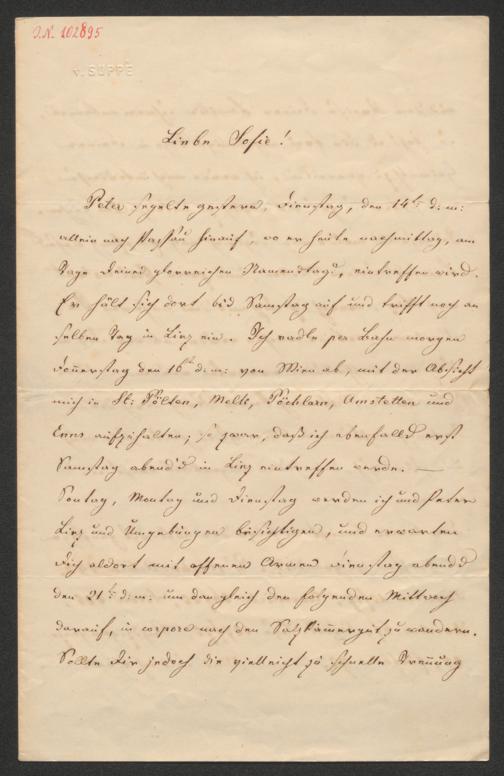 J.N. 102895
v. SUPPÉ
Liebe Sofie!
Peter segelte gestern, Dienstag, den 14t d: m:
allein nach Passau hinauf, wo er heute nachmittag, am
Tage Deines glorreichen Namenstags, eintreffen wird.
Er hält sich dort bis Samstag auf und trifft noch an
selben Tag in Linz ein. Ich radle per Bahn morgen
Donnerstag den 16t d: m: von Wien ab, mit der Absicht
mich in St: Pölten, Melk, Pöchlarn, Amstetten und
Enns aufzuhalten; so zwar, daß ich ebenfalls erst
Samstag abend's in Linz eintreffen werde. —
Sontag, Montag und Dienstag werden ich und Peter
Linz und Umgebungen besichtigen, und erwarten
Dich aldort mit offenen Armen Dienstag abends
den 21t d: m: um dan gleich den folgenden Mittwoch
darauf, in corpore nach den Salzkammergut zu wandern.
Sollte Dir jedoch die vielleicht zu schnelle Trennung